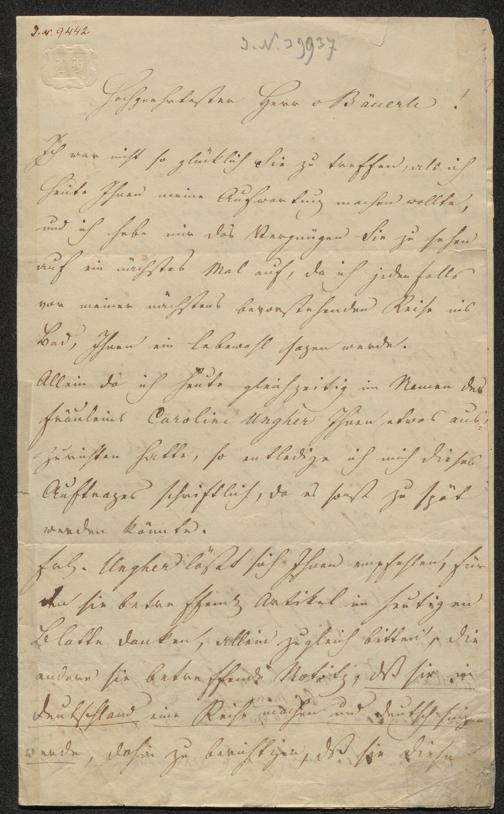 I. N. 9442
I. N. 39937
Hochgeehrtester Herr v Bäuerle !
Ich war nicht so glücklich Sie zu treffen, als ich
heute Ihnen meine Aufwartung machen wollte,
und ich hebe mir das Vergnügen Sie zu sehen
auf ein nächstes Mal auf, da ich jeden falls
vor meiner nächstens bevorstehenden Reise ins
Bad, Ihnen ein Lebewohl sagen werde.
Allein da ich heute gleichzeitig im Namen des
Fräuleins Caroline Ungher Ihnen etwas aus-
zurichten hatte, so entledige ich mich dieses
Auftrages schriftlich, da es sonst zu spät
werden könnte.
Frl. Ungher läßt sich Ihnen empfehlen, für
den sie betreffenden Artikel im heutigen
Blatte danken, allein zugleich bitten, die
andere sie betreffende Notitz, daß sie in
Deutschland eine Reise machen und deutsch singen
werde, dahin zu berichtigen, daß sie diese